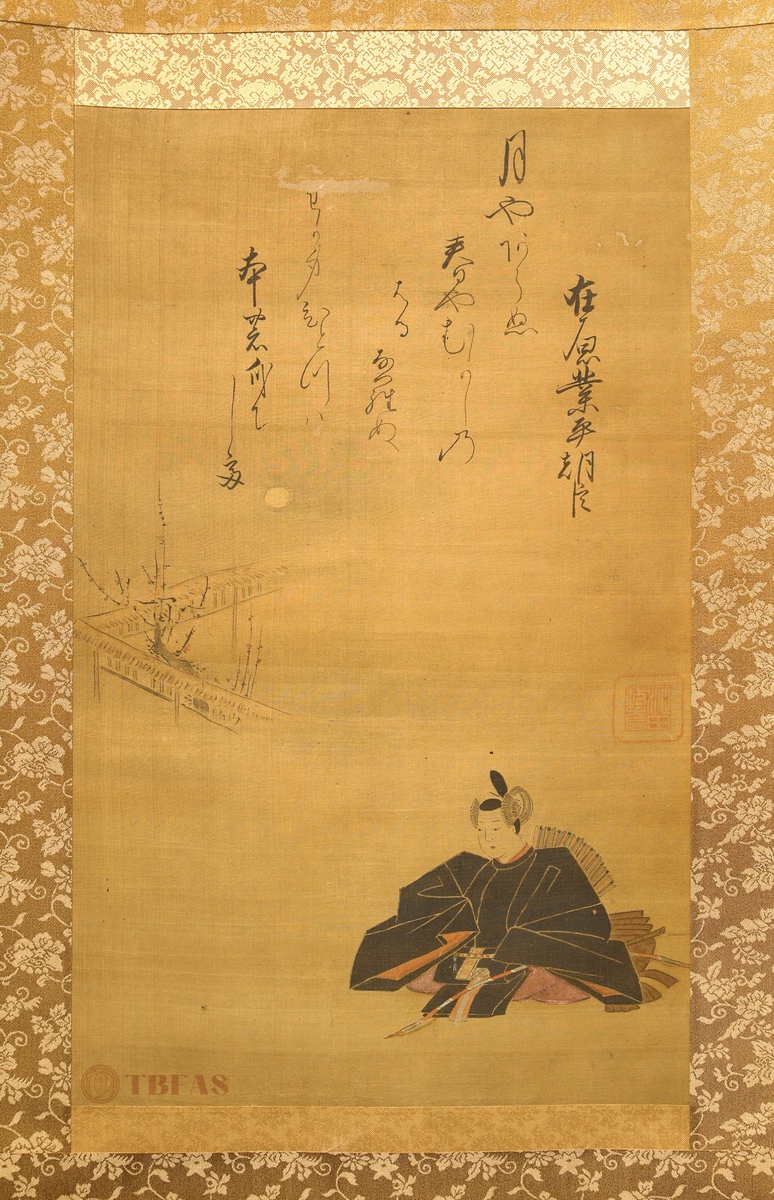 在原業平朝臣
月やあらぬ
春やむかし乃
はるならぬ
わか身ひとつハ
本の身にして
TBFAS